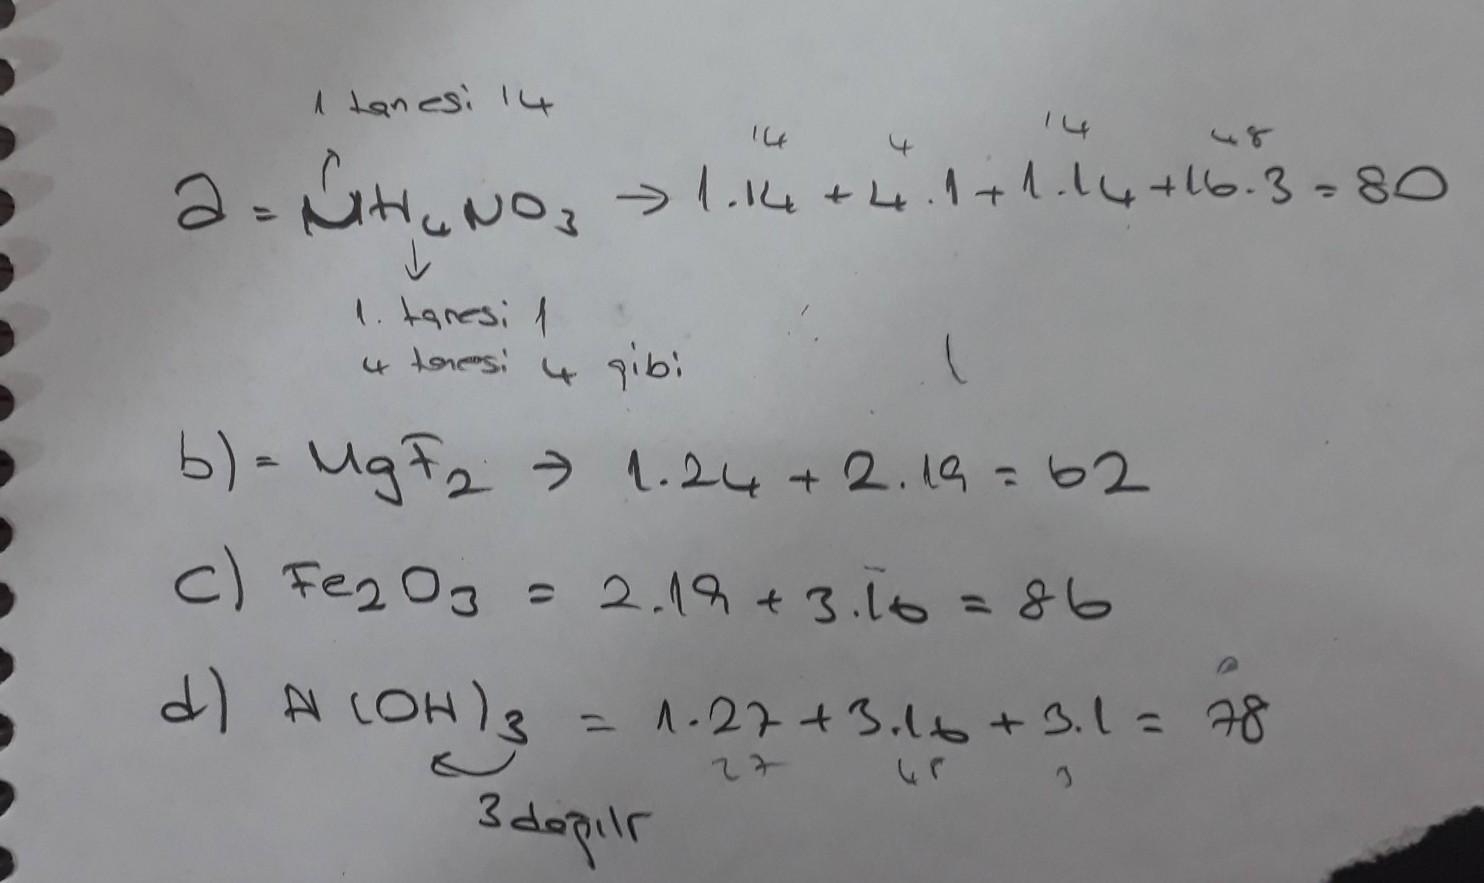 1 tanesi 14
14 4 14 48
a = NH4NO3 → 1.14 + 4.1 + 1.14 + 16.3 = 80
1. tanesi 1
4 tanesi 4 gibi
b) = MgF2 → 1.24 + 2.19 = 62
c) Fe2O3 = 2.19 + 3.16 = 86
d) Al(OH)3 = 1.27 + 3.16 + 3.1 = 78
27 48 3
3 dağılır